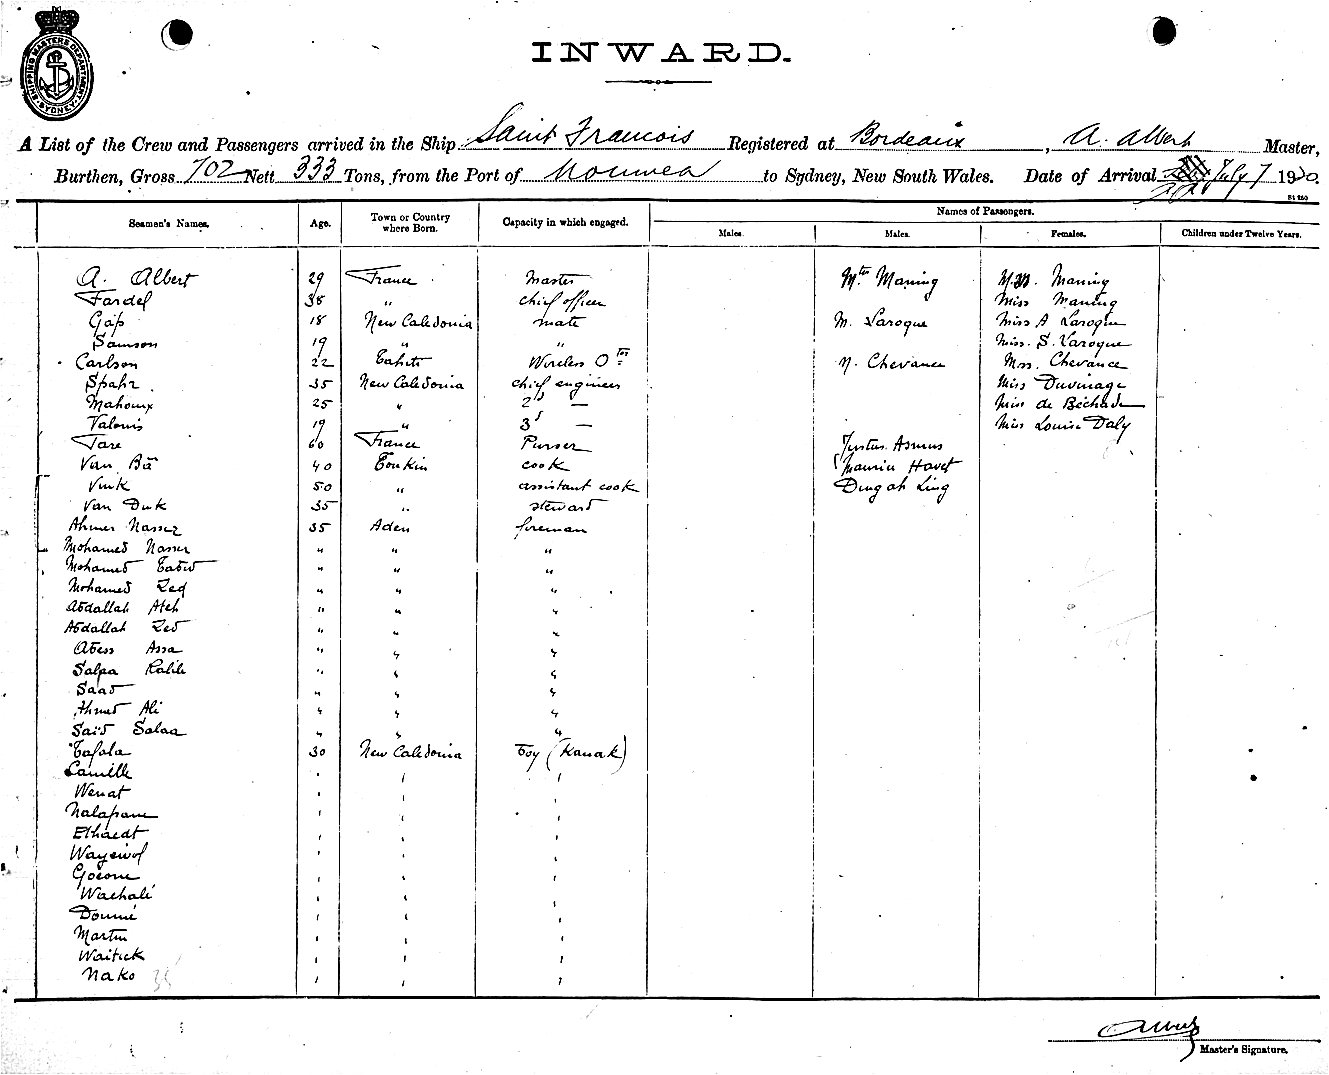 SHIPPING MASTERS DEPARTMENT SYDNEY
INWARD.
A List of the Crew and Passengers arrived in the Ship Saint Francois Registered at Bordeaux, A. Albert Master,
Burthen, Gross 702 Nett 333 Tons, from the Port of Noumea to Sydney, New South Wales. Date of Arrival July 7 1920.
Names of Passengers.
Seamen's Names. Age. Town or Country where Born. Capacity in which engaged. Males. Males. Females. Children under Twelve Years.
A. Albert 29 France Master Mter Maning Maning
Fardel 38 " chief officer Miss Maning
Gap 18 New Caledonia mate M. Laroque Miss A Laroque
Samson 19 " " Miss. S. Laroque
Carlson 22 Tahiti Wireless Otor N. Chevance Mrs. Chevance
Spahr 35 New Caledonia chief engineer Miss Duvinage
Mahoux 25 " 2d — Miss de Béchade
Valouis 19 " 3d — Miss Louise Daly
Tare 60 France Purser Justus Asmus
Van Ba 40 Tonkin cook Maurice Havet
Vink 50 " assistant cook Dingah Ling
Van Duk 35 " steward
Ahmer Nasser 35 Aden fireman
Mohamed Nasser " " "
Mohamed " " "
Mohamed Zed " " "
Abdallah Ateh " " "
Abdallah Zed " " "
Abess Assa " " "
Salpa Kalib " " "
Saad " " "
Ahmed Ali " " "
Said Salaa " " "
Tafola 30 New Caledonia boy (Kanak)
Camille " " "
Wenat " " "
Nalapane " " "
Elhaedt " " "
Wayewol " " "
Goeone " " "
Wachali " " "
Doumé " " "
Martin " " "
Waitick " " "
Nako 35 " " "
Albert
Master's Signature.